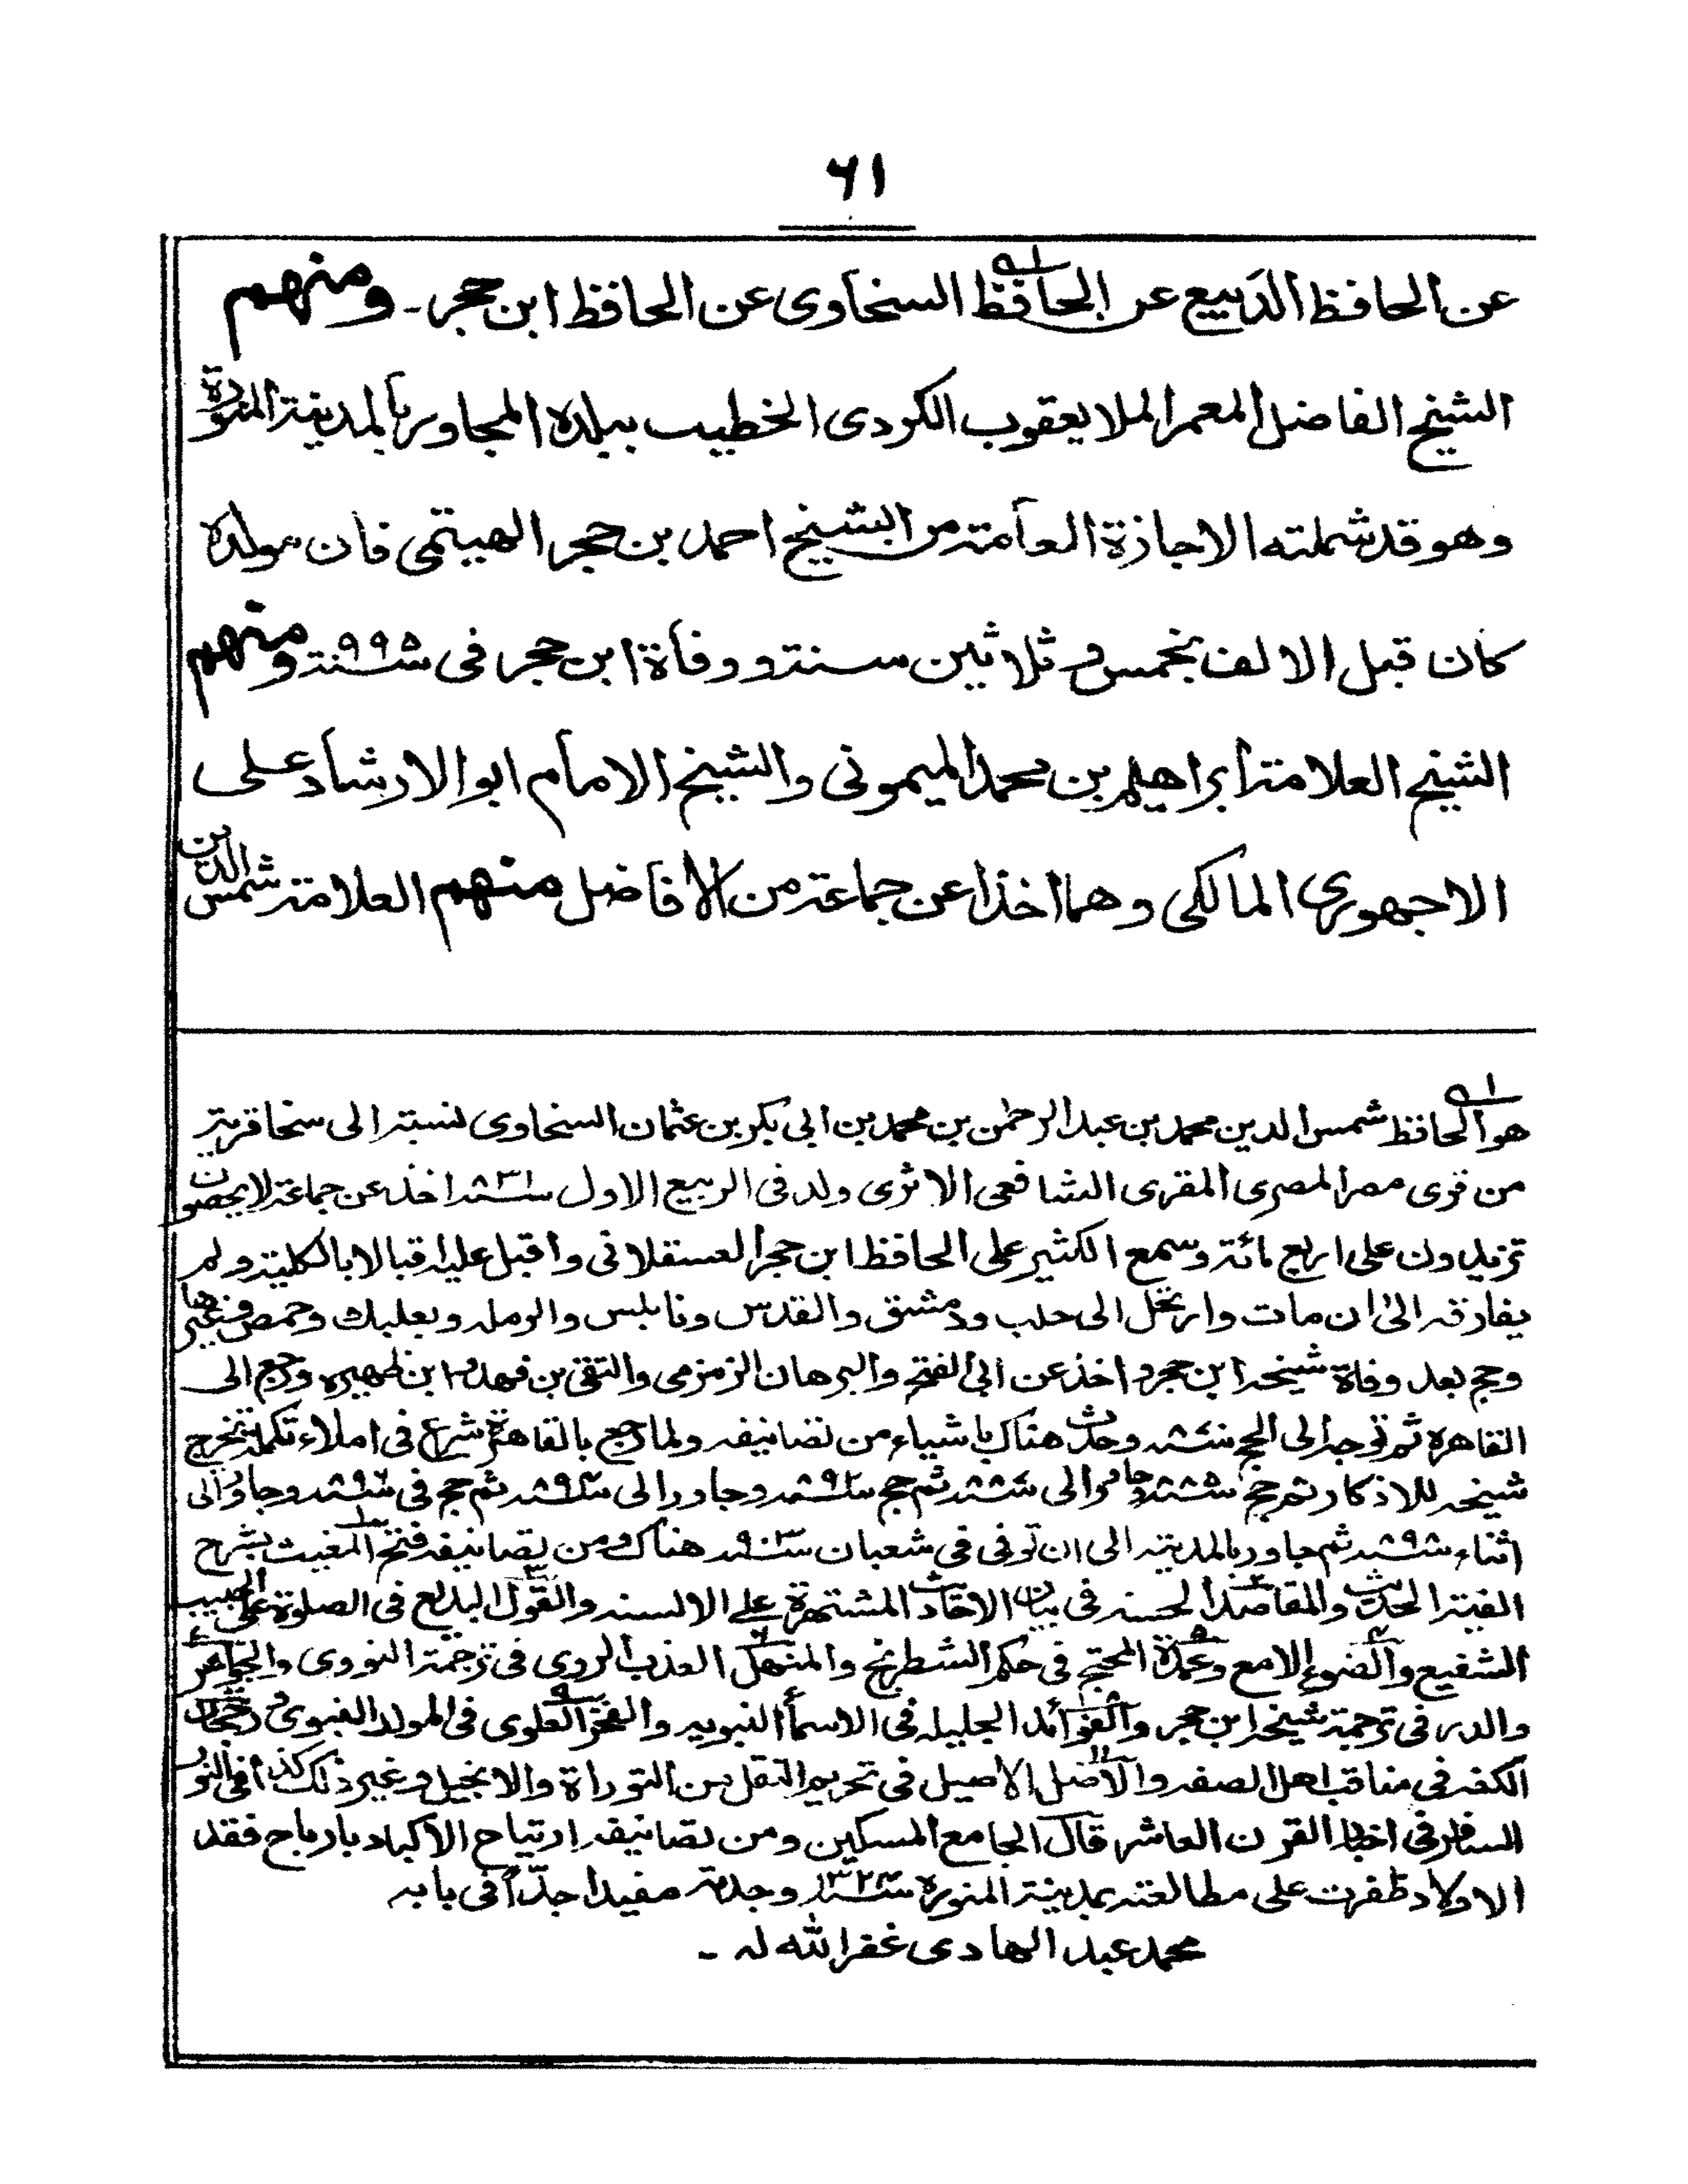 ۶۱
عن الحافظ الدَيبع عن الحافظ السخاوى عن الحافظ ابن حجر ۔ ومنهم
الشيخ الفاضل المعمر الملا يعقوب الكردى الخطيب ببلده المجاور بالمدينة المنورة
وهو قد شملته الاجازة العامة من الشيخ احمد بن حجر الهيتمى فان مولده
كان قبل الالف بخمس و ثلاثين سنة و وفاة ابن حجر فى سنة ۹۹۵ ومنهم
الشيخ العلامة ابراهيم بن محمد الميمونى والشيخ الامام ابو الارشاد على
الاجهورى المالكى وهما اخذا عن جماعة من الافاضل منهم العلامة شمس الدين
هو الحافظ شمس الدين محمد بن عبد الرحمٰن بن محمد بن ابى بكر بن عثمان السخاوى نسبة الى سخا قرية
من قرى مصر المصرى المقرى الشافعى الاثرى ولد فى الربيع الاول سنة ۸۳۱ اخذ عن جماعة لا يحصون
تزيدون على اربع مائة وسمع الكثير على الحافظ ابن حجر العسقلانى واقبل عليه اقبالا بالكلية ولم
يفارقه الى ان مات وارتحل الى حلب ودمشق والقدس ونابلس والرمله وبعلبك وحمص وغيرها
وحج بعد وفاة شيخه ابن حجر و اخذ عن ابى الفتح والبرهان الزمزمى والتقى بن فهد و ابن ظهيره ورجع الى
القاهره ثم توجه الى الحج وحدث هناك باشياء من تصانيفه ولما رجع بالقاهرة شرع فى املاء تكملة تخرج
شيخه للاذكار ثم حج وجاور الى ثم حج وجاور الى ثم حج فى وجاور الى
اثناء ثم جاور بالمدينة الى ان توفى فى شعبان سنة ۹۰۳ هناك ومن تصانيفه فتح المغيث بشرح
الفية الحديث والمقاصد الحسنه فى بيان الاحاديث المشتهرة على الالسنه والقول البديع فى الصلوة على الحبيب
الشفيع والضوء الامع وعمدة المحتج فى حكم الشطرنج والمنهل العذب الروى فى ترجمة النووى والجواهر
والدرر فى ترجمة شيخه ابن حجر والفوائد الجليله فى الاسمأ النبويه والفخر العلوى فى المولد النبوى و رجحان
الكفه فى مناقب اهل الصفه والاصل الاصيل فى تحريم النقل من التوراة والانجيل وغير ذلك كذا فى النور
السافر فى اخبار القرن العاشر قال الجامع المسكين ومن تصانيفه ارتياح الاكباد بارباح فقد
الاولاد ظفرت على مطالعته بمدينة المنوره سنة ۱۳۲۴ وجدته مفيدا جدّاً فى بابه
محمد عبد الهادى غفر الله له ۔